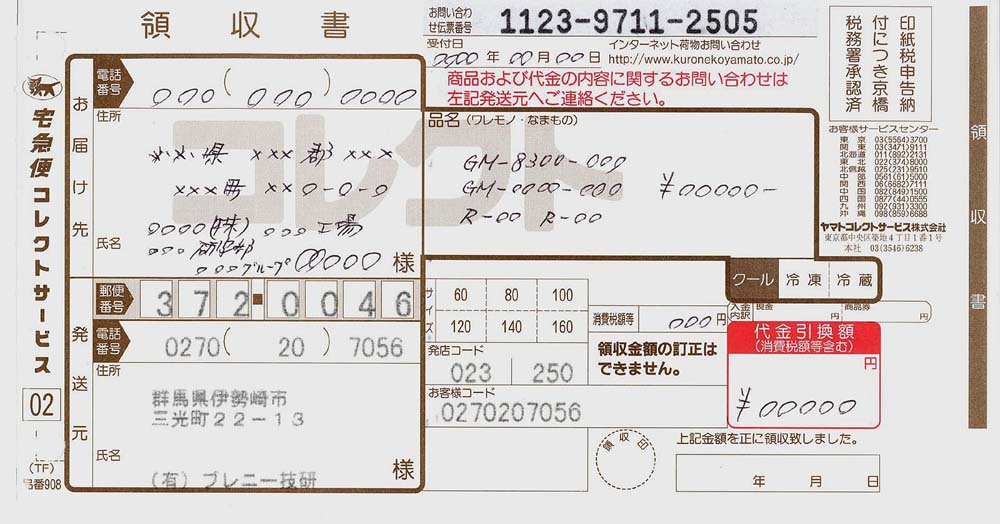 領収書
お問い合わせ伝票番号
1123-9711-2505
受付日
0000年00月00日
インターネット荷物お問い合わせ
http://www.kuronekoyamato.co.jp/
商品および代金の内容に関するお問い合わせは
左記発送元へご連絡ください。
印紙税申告納
付につき京橋
税務署承認済
宅急便コレクトサービス
02
(TF)
品番908
お届け先
電話番号
000 (000) 0000
住所
××県 ×××郡 ×××
×××町 ××0-0-0
0000(株) 000工場
000研究部
000グループ 00000 様
氏名
コレクト
品名(ワレモノ・なまもの)
GM-8300-000
GM-0000-000
R-00 R-00
¥00000-
お客様サービスセンター
東京 03(5564)3700
関東 03(3471)9111
北海道 011(892)2131
東北 022(374)8000
北信越 025(231)9510
中部 0561(61)5000
関西 06(6682)7111
中国 082(849)1500
四国 0877(44)0555
九州 092(931)3300
沖縄 098(859)6688
ヤマトコレクトサービス株式会社
東京都中央区築地4丁目1番1号
本社 03(3546)6238
クール 冷凍 冷蔵
郵便番号
372-0046
発送元
電話番号
0270(20)7056
住所
群馬県伊勢崎市
三光町22-13
氏名
(有)ブレニー技研
様
サイズ
60 80 100
120 140 160
消費税額等
000円
入金内訳
現金
商品券
円
発店コード
023 250
領収金額の訂正は
できません。
お客様コード
0270207056
代金引換額
(消費税額等含む)
円
¥00000
領収印
上記金額を正に領収致しました。
年 月 日
領収書